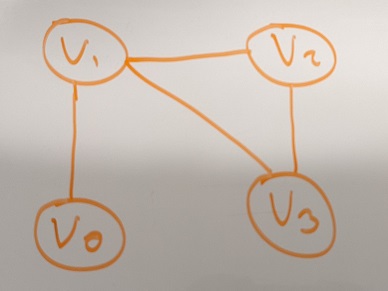 V₁ V₂
V₀ V₃